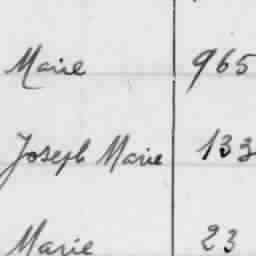 Marie 965
Joseph Marie 133
Marie 23